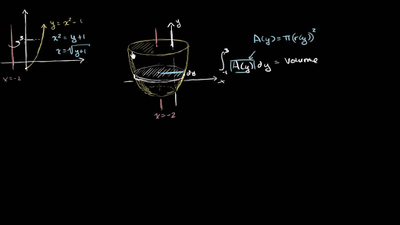 y = x² - 1
x² = y + 1
x = √y+1
3
x = -2
y
dy
x
x = -2
A(y) = π(r(y))²
∫₋₁³ A(y) dy = Volume